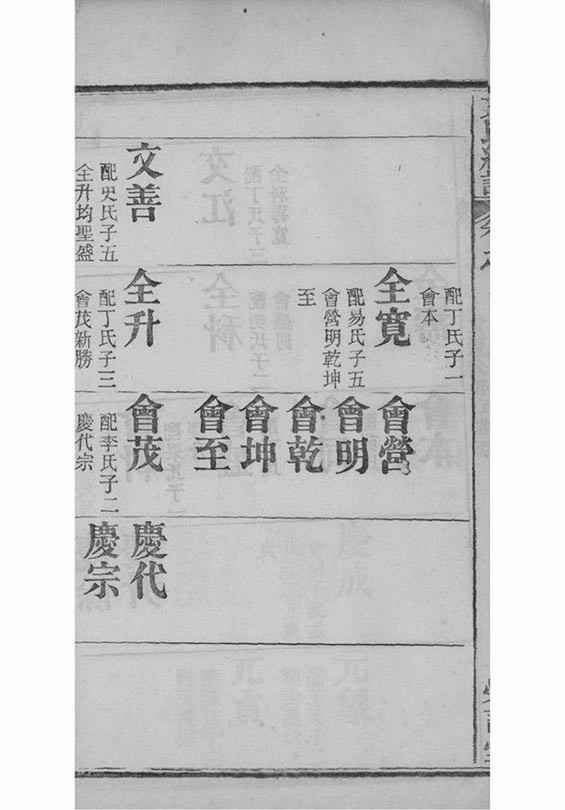 文善
配史氏子五
全升均聖盛
配丁氏子一
會本
全寬
配易氏子五
會營明乾坤
至
全升
配丁氏子三
會茂新勝
會營
會明
會乾
會坤
會至
會茂
配李氏子二
慶代宗
慶代
慶宗